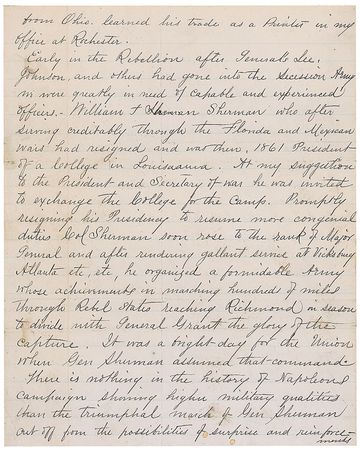 from Ohio. learned his trade as a Printer in my
Office at Rochester.
Early in the Rebellion after Generals Lee.
Johnson, and others had gone into the Secession Army
in were greatly in need of capable and experienced
Officers.- William T Sherman who after
serving creditably through the Florida and Mexican
wars had resigned and was then, 1861 President
of a College in Louisianna. At my suggestion
to the President and Secretary of war he was invited
to exchange the College for the Camp. Promptly
resigning his Presidency to resume more congenial
duties Col Sherman soon rose to the rank of Major
General and after rendering gallant service at Vicksburg
Atlanta etc, etc, he organized a formidable Army
whose achievments in marching hundreds of miles
through Rebel States reaching Richmond in season
to divide with General Grant the glory of the
capture. It was a bright day for the Union
when Gen Sherman assumed that command.
There is nothing in the history of Napoleons
campaign shoing higher military qualities
than the triumphal march of Gen Sherman
cut off from the possibilities of surprise and reinforce-
ments